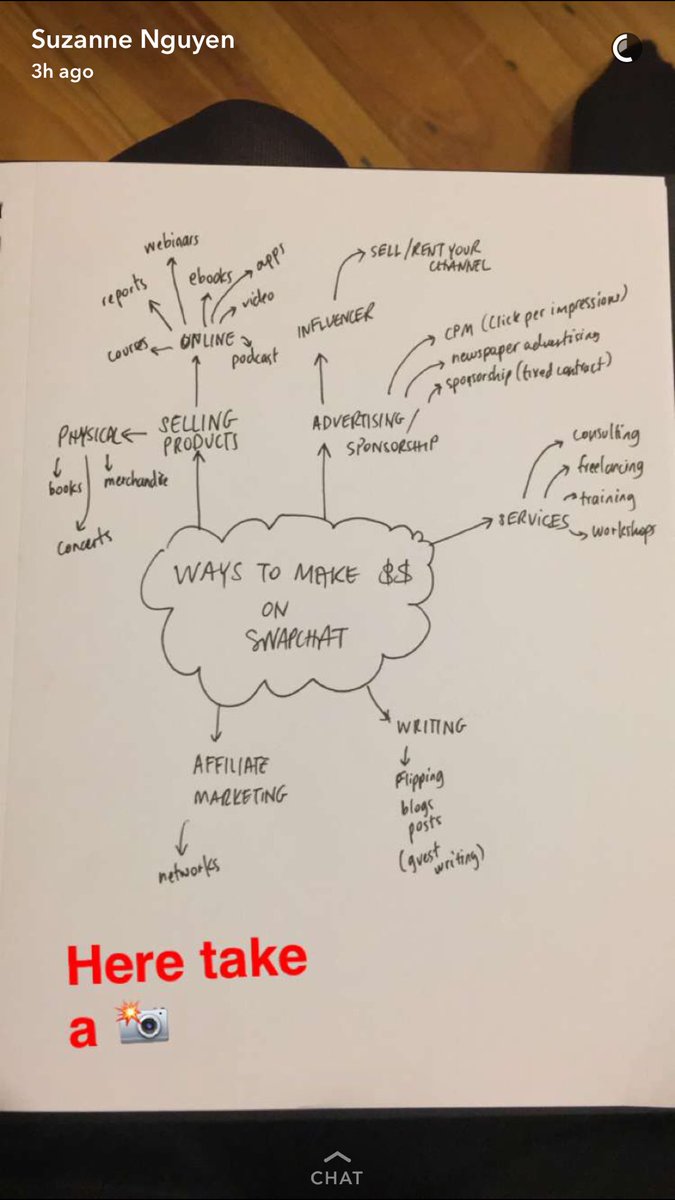 Suzanne Nguyen
3h ago
webinars
reports
ebooks
apps
video
coures
ONLINE
podcast
PHYSICAL
SELLING
PRODUCTS
books
merchandise
concerts
INFLUENCER
SELL/RENT YOUR
CHANNEL
ADVERTISING/
SPONSORSHIP
CPM (Click per impression)
newspaper advertising
sponsorship (fixed contract)
SERVICES
consulting
freelancing
training
workshops
WAYS TO MAKE $$
ON
SNAPCHAT
AFFILIATE
MARKETING
networks
WRITING
Flipping
blogs
posts
(guest
writing)
Here take
a 📸
CHAT